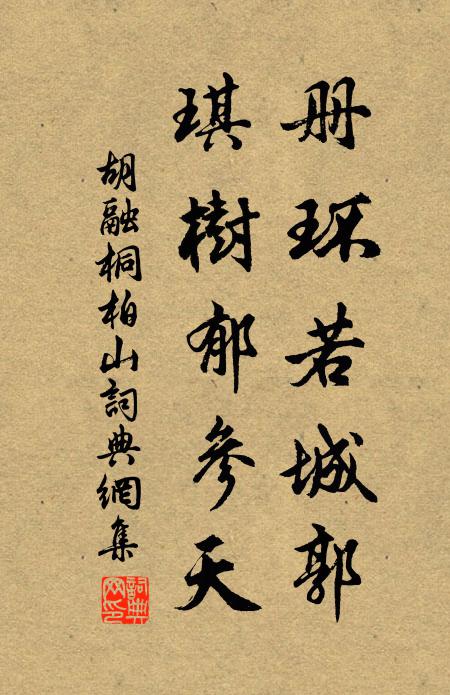 册环若城郭
琪樹郁參天
胡融桐柏山詞典網集
詞典网印